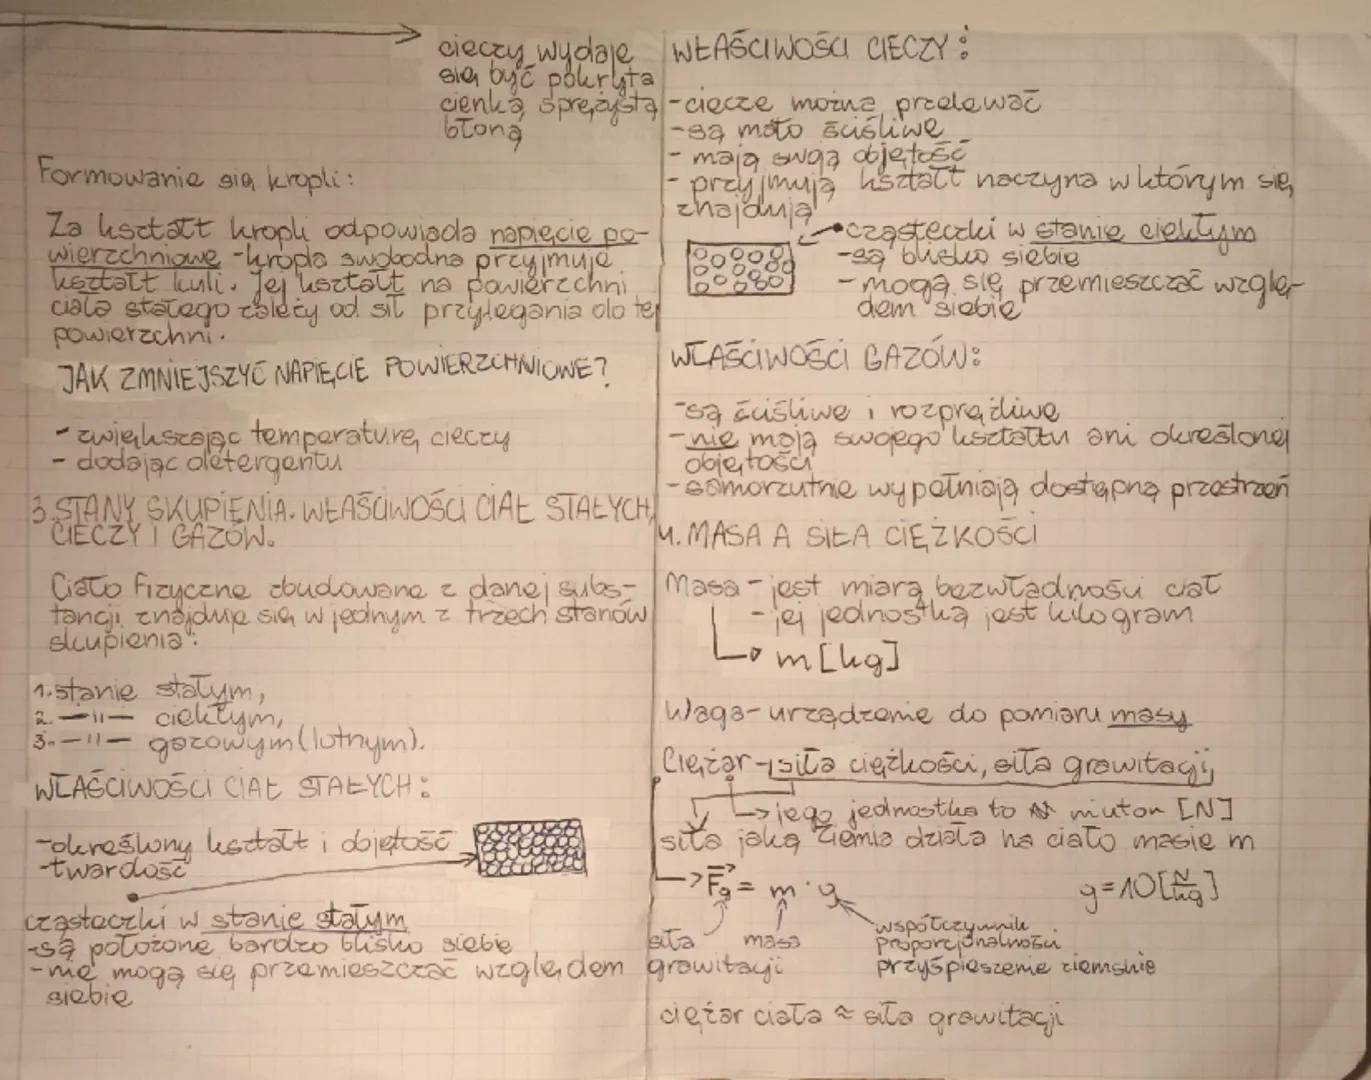 cieczy wydaje
się być pokryta
cienką, sprężystą
błoną
Formowanie się kropli:
Za kształt kropli odpowiada napięcie po-
wierzchniowe - kropla swobodna przyjmuje
kształt kuli. Jej kształt na powierzchni
ciała stałego zależy od sił przylegania do tej
powierzchni.
JAK ZMNIEJSZYĆ NAPIĘCIE POWIERZCHNIOWE?
- zwiększając temperaturę cieczy
- dodając detergentu
3. STANY SKUPIENIA. WŁAŚCIWOŚCI CIAŁ STAŁYCH,
CIECZY I GAZÓW.
Ciało fizyczne zbudowane z danej subs-
tancji, znajduje się w jednym z trzech stanów
skupienia:
1. stanie stałym,
2. —11— ciekłym,
3. —11— gazowym (lotnym).
WŁAŚCIWOŚCI CIAŁ STAŁYCH:
- określony kształt i objętość
- twardość
cząsteczki w stanie stałym
- są położone bardzo blisko siebie
- nie mogą się przemieszczać względem
siebie
WŁAŚCIWOŚCI CIECZY:
- ciecze można przelewać
- są mało ściśliwe
- mają swoją objętość
- przyjmują kształt naczyna w którym się
znajdują
cząsteczki w stanie ciekłym
- są blisko siebie
- mogą się przemieszczać wzglę-
dem siebie
WŁAŚCIWOŚCI GAZÓW:
- są ściśliwe i rozprężliwe
- nie mają swojego kształtu ani określonej
objętości
- samorzutnie wypełniają dostępną przestrzeń
4. MASA A SIŁA CIĘŻKOŚCI
Masa - jest miarą bezwładności ciał
- jej jednostką jest kilogram
m [kg]
Waga - urządzenie do pomiaru masy
Ciężar - siła ciężkości, siła grawitacji,
jego jednostka to niuton [N]
siła jaką Ziemia działa na ciało masie m
F⃗g = m · g
g = 10 [N/kg]
siła
grawitacji
masa
współczynnik
proporcjonalności
przyśpieszenie ziemskie
ciężar ciała ≈ siła grawitacji